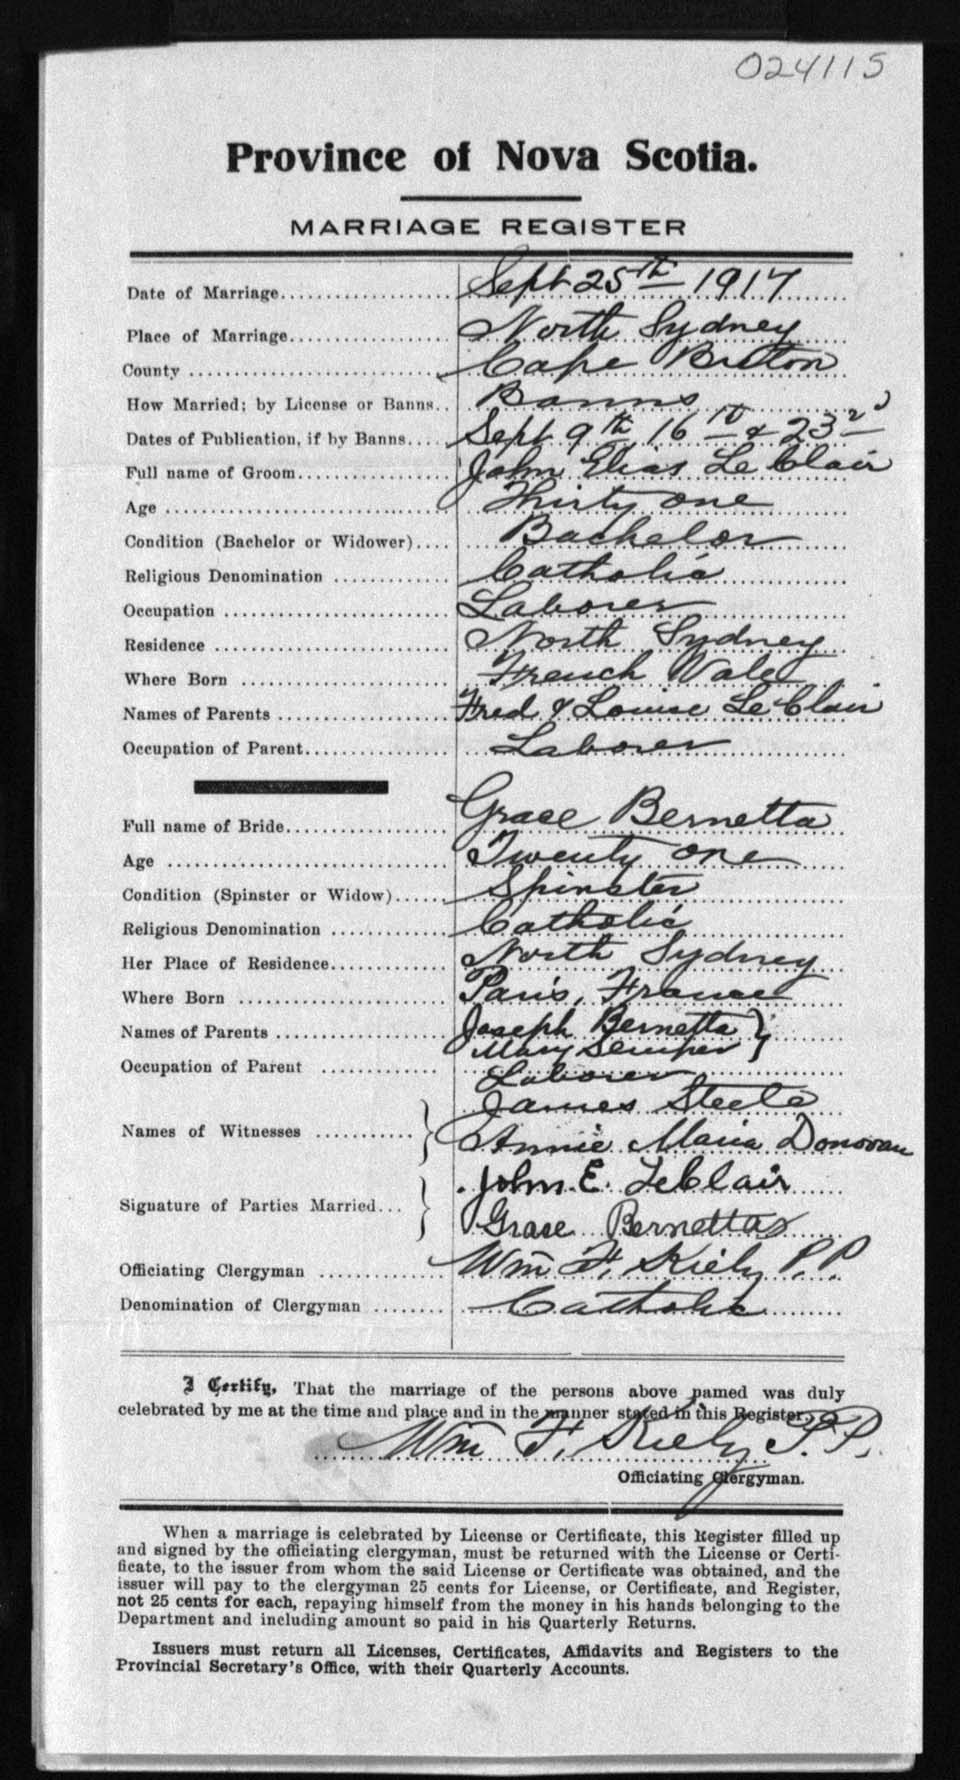 024115
Province of Nova Scotia.
MARRIAGE REGISTER
Date of Marriage Sept 25th 1917
Place of Marriage North Sydney
County Cape Breton
How Married; by License or Banns Banns
Dates of Publication, if by Banns Sept 9th 16th & 23rd
Full name of Groom John Elias LeClair
Age Thirty one
Condition (Bachelor or Widower) Bachelor
Religious Denomination Catholic
Occupation Laborer
Residence North Sydney
Where Born French Vale
Names of Parents Fred & Louise LeClair
Occupation of Parent Laborer
Full name of Bride Grace Bernetta
Age Twenty one
Condition (Spinster or Widow) Spinster
Religious Denomination Catholic
Her Place of Residence North Sydney
Where Born Paris, France
Names of Parents Joseph Bernetta }
Mary Semper
Occupation of Parent Laborer
James Steele
Names of Witnesses } Annie Maria Donovan
John E. LeClair
Signature of Parties Married } Grace Bernettas
Officiating Clergyman Wm F. Kiely P.P.
Denomination of Clergyman Catholic
I Certify, That the marriage of the persons above named was duly
celebrated by me at the time and place and in the manner stated in this Register.
Wm F. Kiely P.P.
Officiating Clergyman.
When a marriage is celebrated by License or Certificate, this Register filled up
and signed by the officiating clergyman, must be returned with the License or Certi-
ficate, to the issuer from whom the said License or Certificate was obtained, and the
issuer will pay to the clergyman 25 cents for License, or Certificate, and Register,
not 25 cents for each, repaying himself from the money in his hands belonging to the
Department and including amount so paid in his Quarterly Returns.
Issuers must return all Licenses, Certificates, Affidavits and Registers to the
Provincial Secretary's Office, with their Quarterly Accounts.